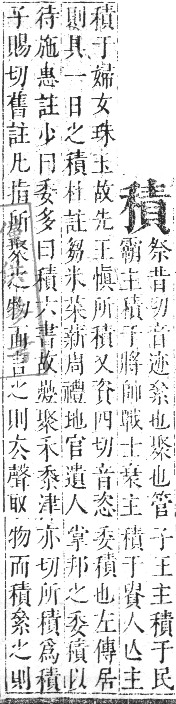 積
祭昔切音迹絫也聚也管子王主積于民
霸主積于將師戰士衰主積于貴人亾主
積于婦女珠玉故先王愼所積又資四切音恣委積也左傳居
則具一日之積杜註芻米菜薪周禮地官遺人掌邦之委積以
待施惠註少曰委多曰積六書故蓺聚禾黍津亦切所積爲積
子賜切舊註凡指所聚之物而言之則去聲取物而積絫之則